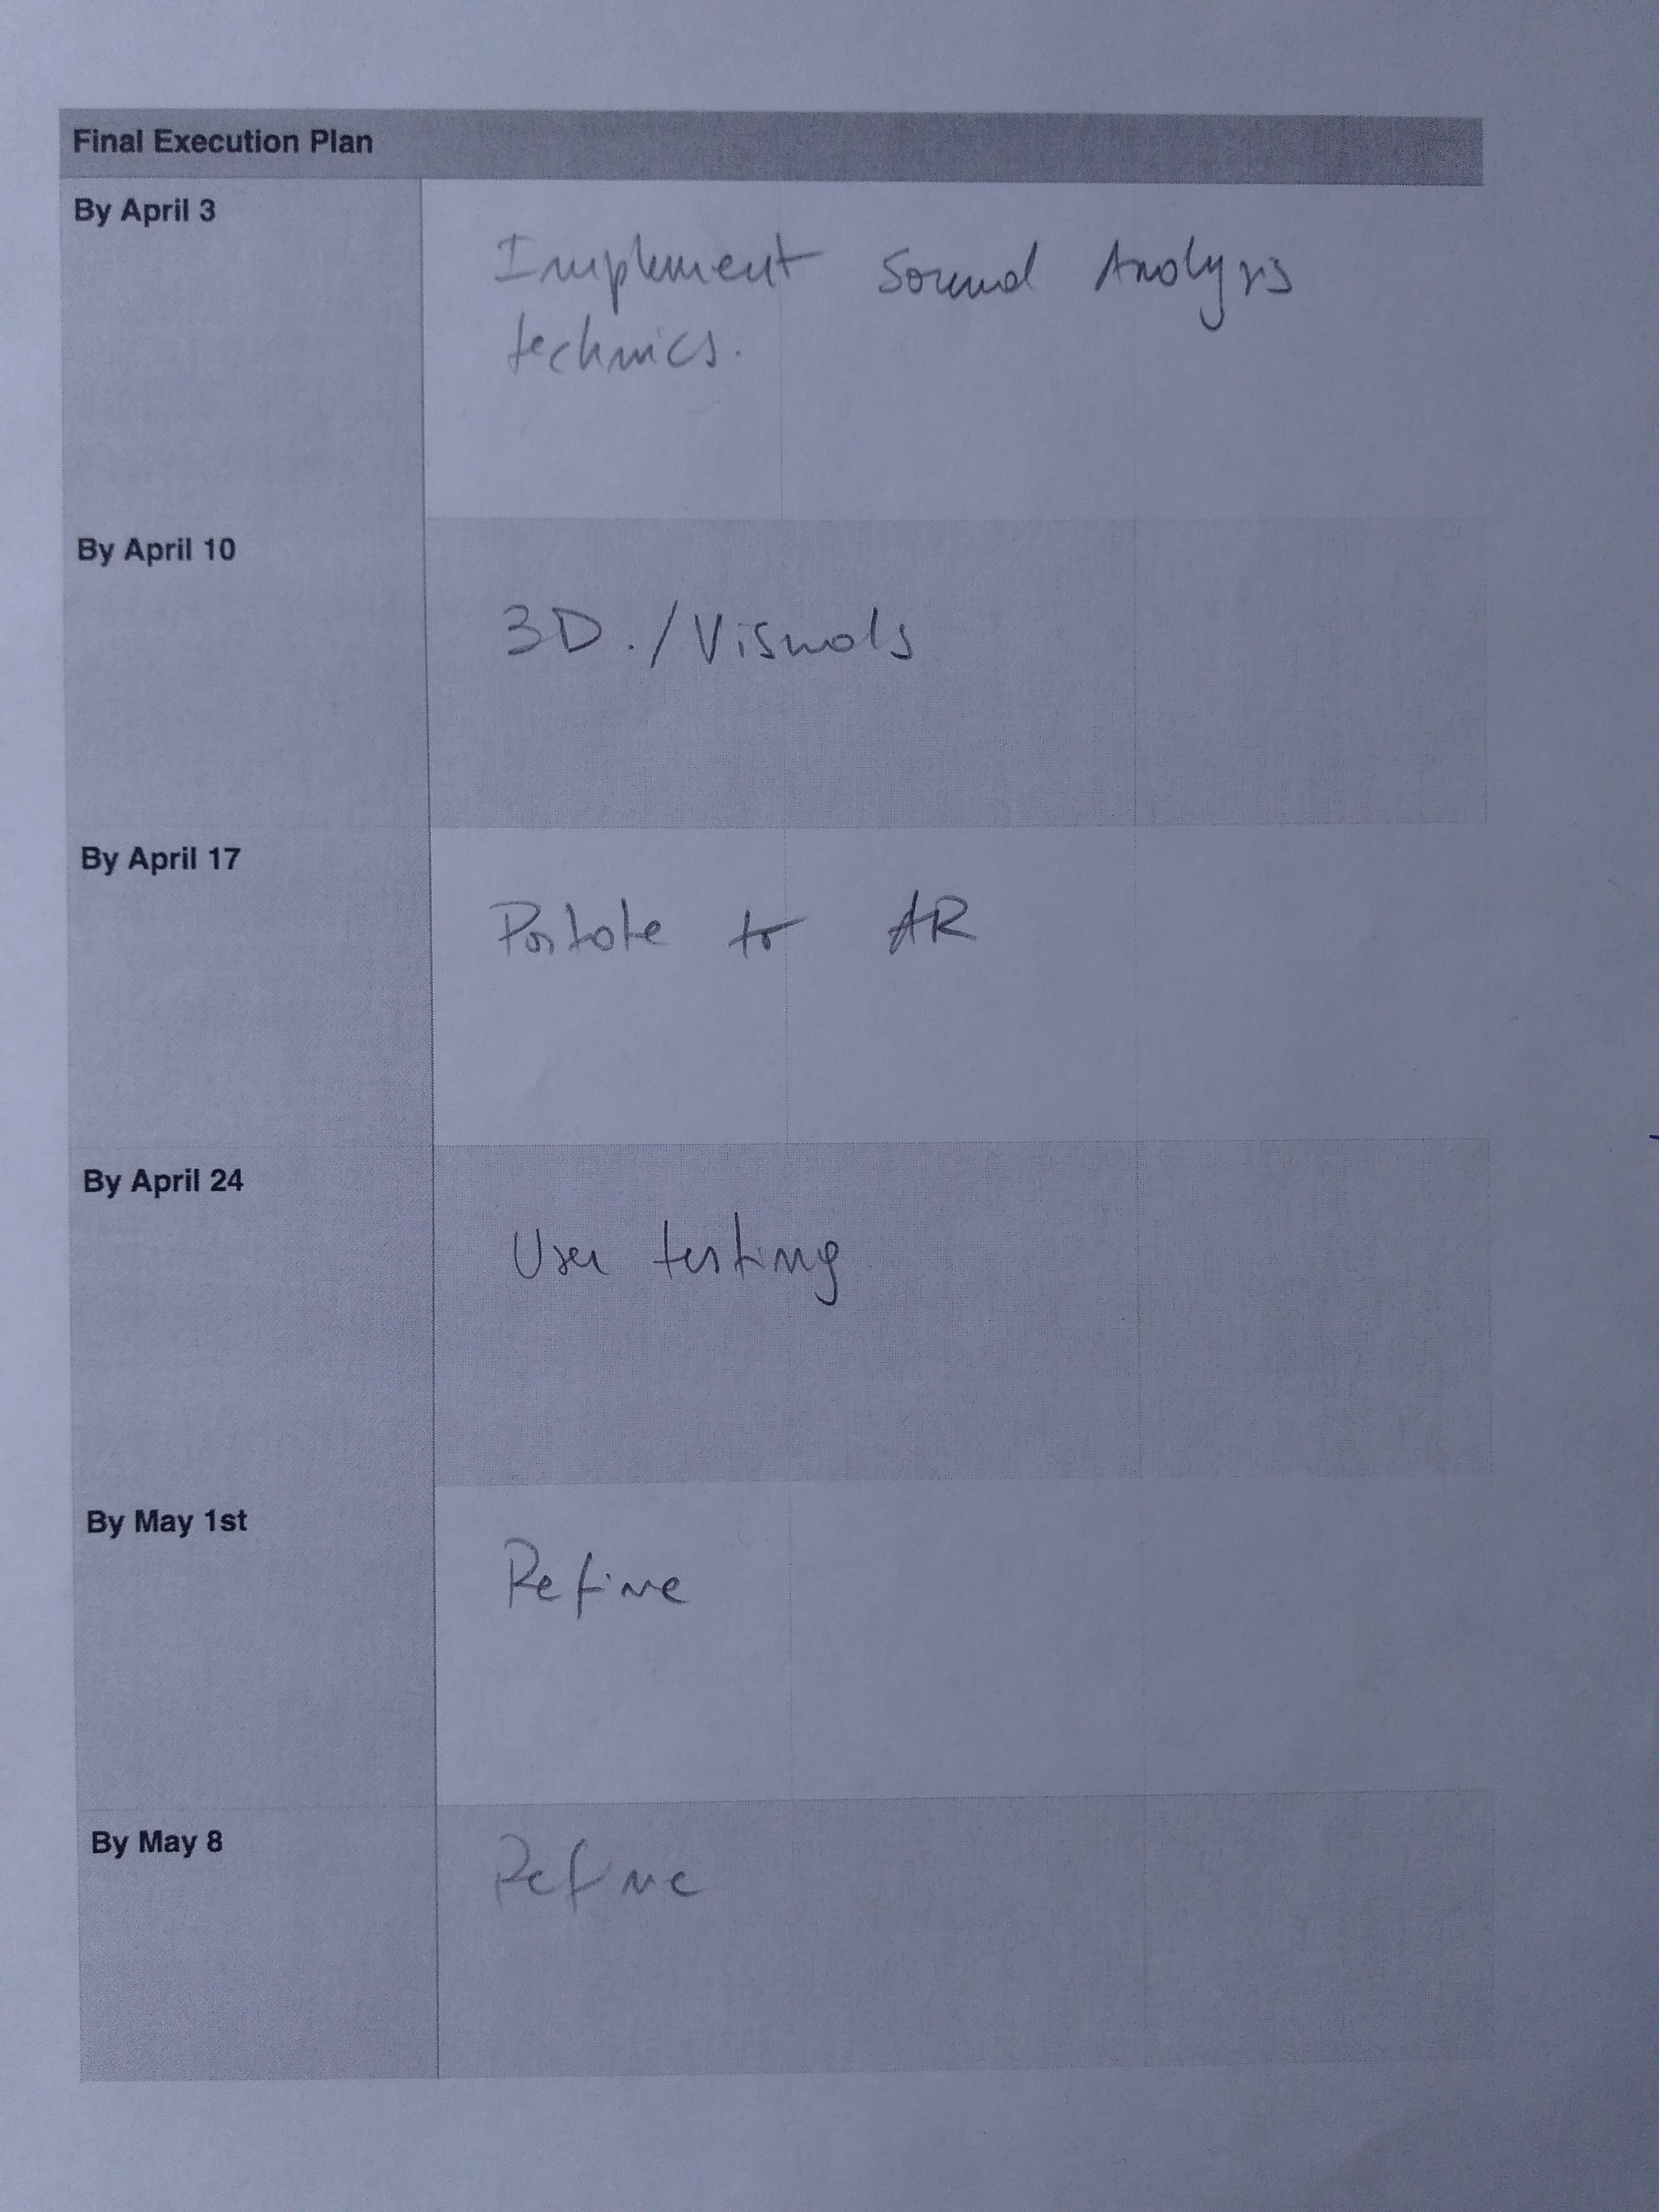 Final Execution Plan
By April 3
Implement Sound Analysis
technics.
By April 10
3D./Visuals
By April 17
to AR
By April 24
User testing
By May 1st
Refine
By May 8
Refine